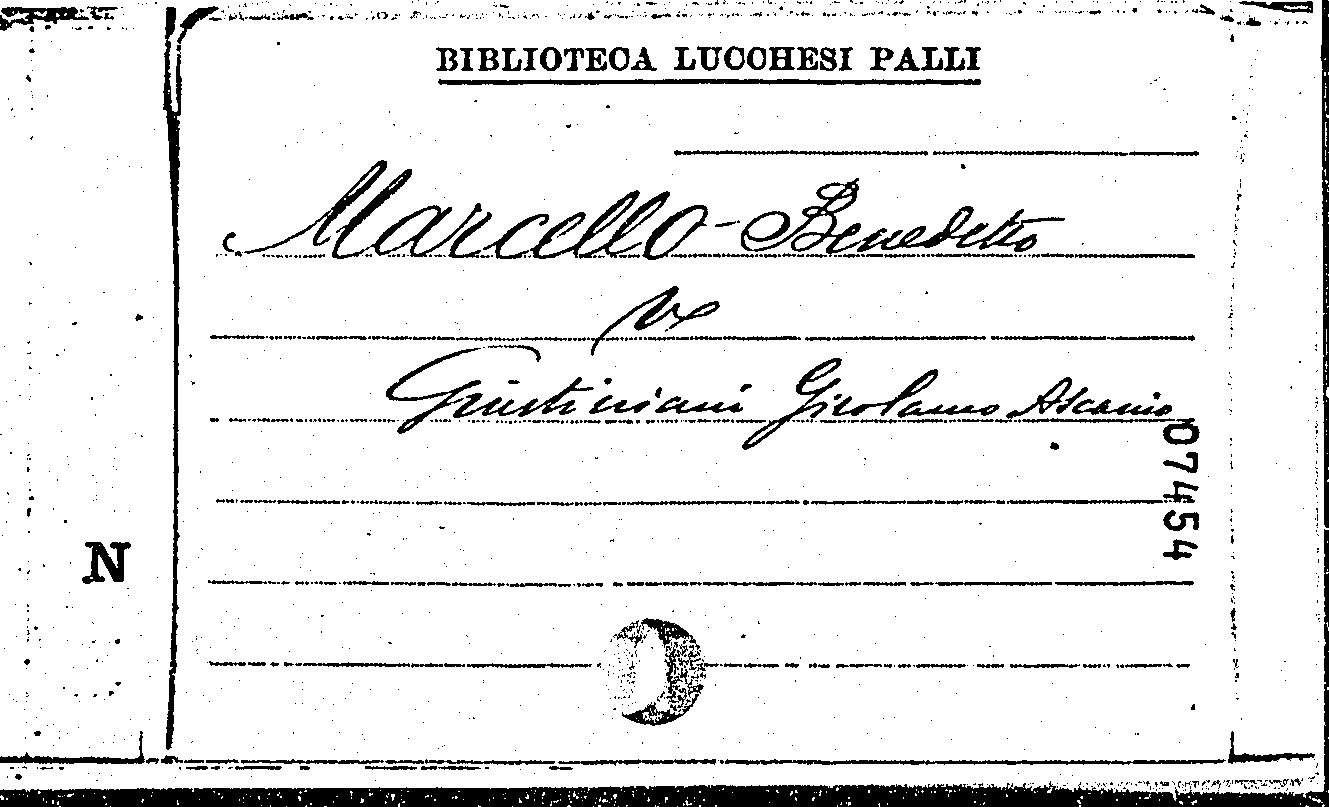 BIBLIOTECA LUCCHESI PALLI
Marcello - Benedetto
V
Giustiniani Girolamo Ascanio
07454
N